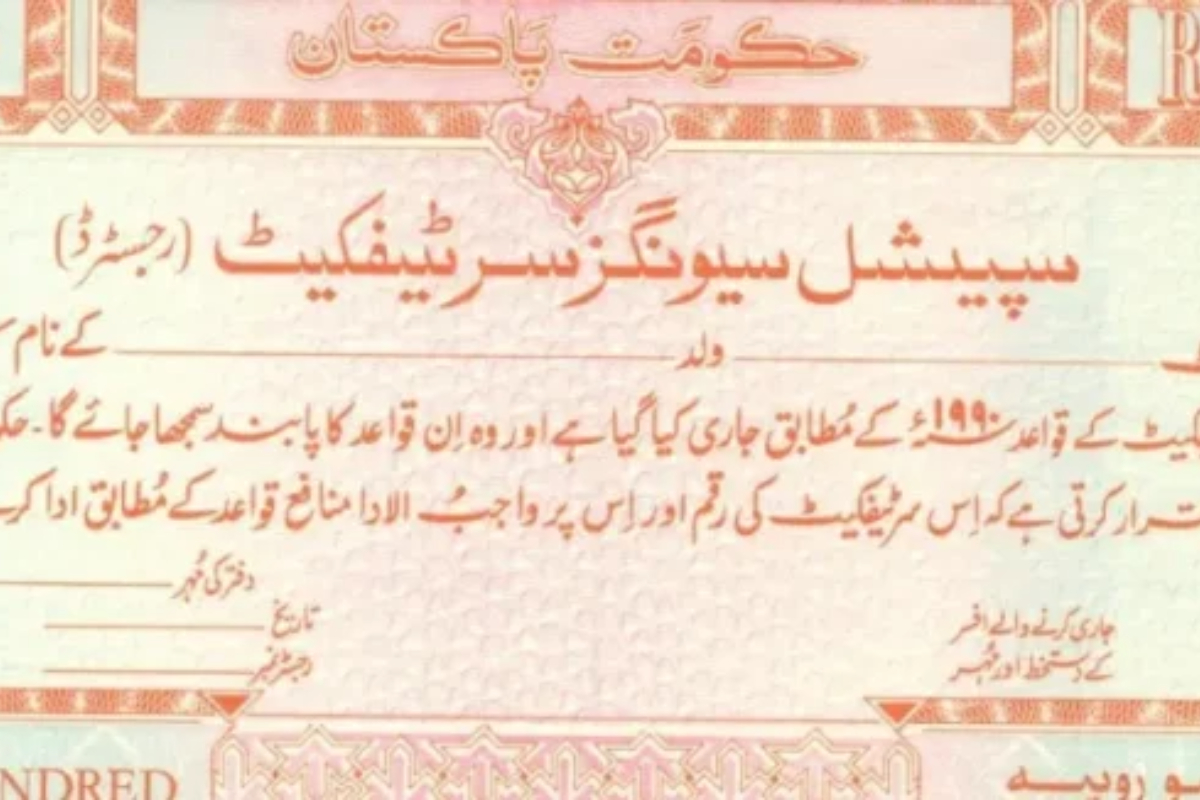 حکومَت پَاکستان
سپیشل سیونگز سرٹیفکیٹ (رجسٹرڈ)
ولد ــــــ کے نام
کے قواعد ۱۹۹۰ء کے مُطابق جاری کیا گیا ہے اور وہ اِن قواعد کا پابند سمجھا جائے گا۔
کرتی ہے کہ اِس سرٹیفکیٹ کی رقم اور اِس پر واجبُ الادا منافع قواعد کے مُطابق ادا
دفتر کی مُہر
جاری کرنے والے افسر
تاریخ
کے دستخط اور مُہر
رجسٹر نمبر
NDRED
روپیہ